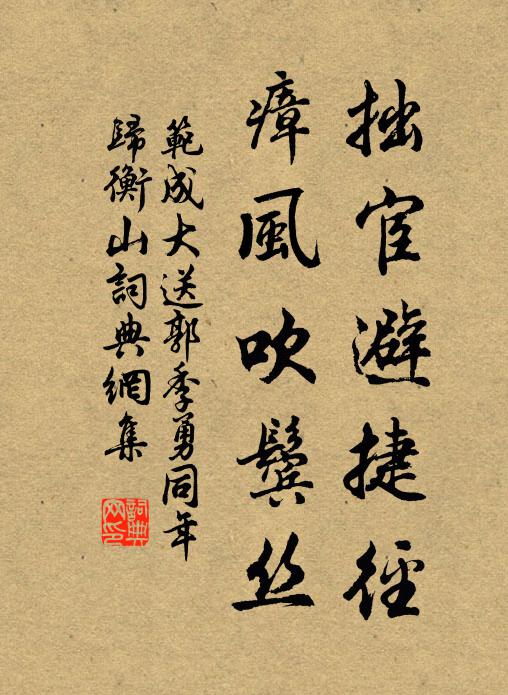 拙宦避捷徑
瘴風吹鬢丝
範成大送郭季勇同年
歸衡山詞典網集
詞典网印